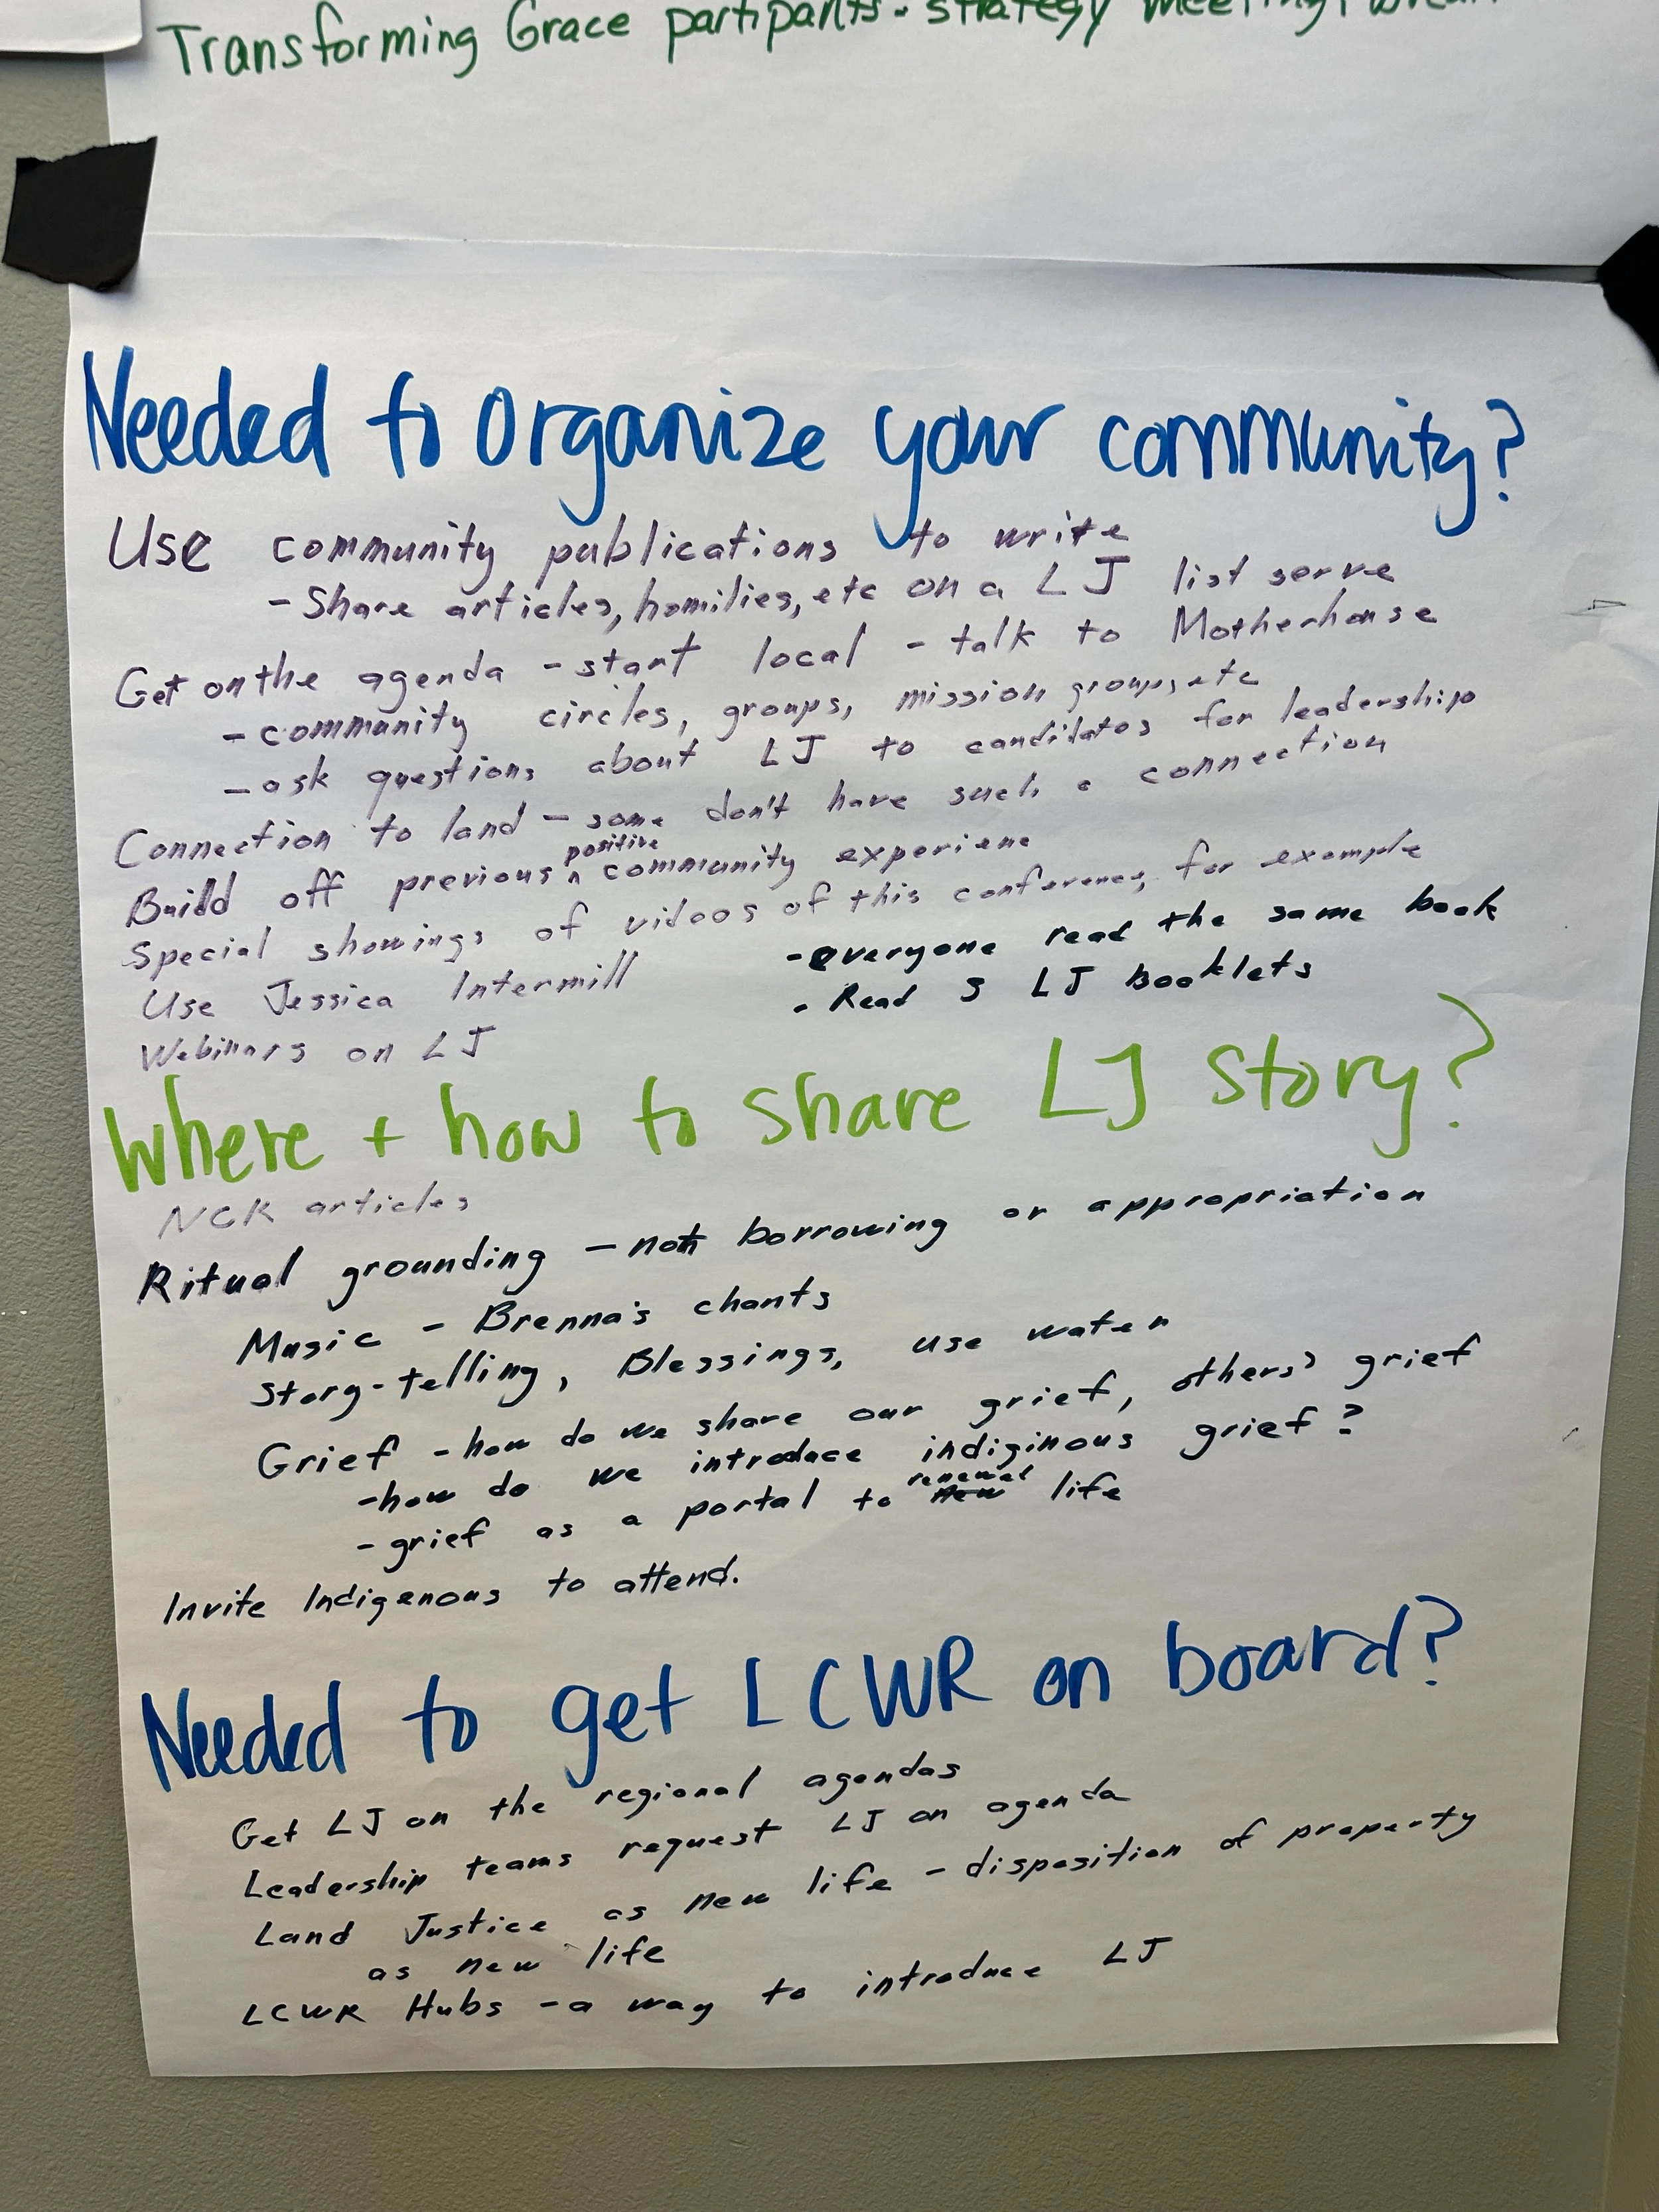 Transforming Grace partipants - strategy meeting,
Needed to organize your community?
Use community publications to write
- Share articles, homilies, etc on a LJ list serve
Get on the agenda - start local - talk to Motherhouse
- community circles, groups, mission groups, etc
- ask questions about LJ to candidates for leadership
Connection to land - some don't have such a connection
Build off previous ^ positive community experience
Special showings of videos of this conference, for example
Use Jessica Intermill
- everyone read the same book
Webinars on LJ
- Read 3 LJ booklets
Where + how to share LJ story?
NCR articles
Ritual grounding - not borrowing or appropriation
Music - Brenna's chants
Story-telling, Blessings, use water
Grief - how do we share our grief, others' grief
- how do we introduce indiginous grief?
- grief as a portal to renewal new life
Invite Indigenous to attend.
Needed to get LCWR on board?
Get LJ on the regional agendas
Leadership teams request LJ on agenda
Land Justice as new life - disposition of property
as new life
LCWR Hubs - a way to introduce LJ